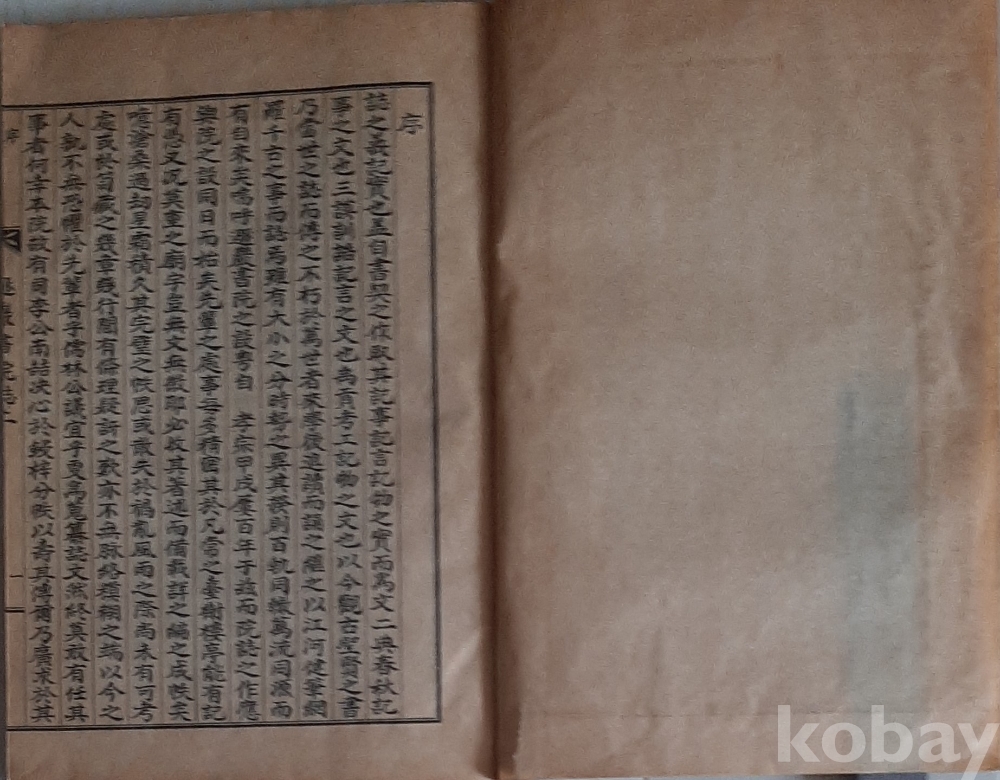 序
誌之義記實也盖自書契之作取其記事記言記物之實而爲文二典春秋記
事之文也三謨訓誥記言之文也禹貢考工記物之文也以今觀古聖賢之書
乃當世之誌而傳之不朽於萬世者來學後進讚而誦之繼之以江河健筆網
羅千古之事而誌焉雖有大小之分時勢之異其揆則百軌同轍萬流同源而
有自來矣嗚呼 書院之設粤自 孝廟甲戌屢百年于玆而院誌之作應
與院之設同日而始矣先輩之處事每多精密其於凡常之臺榭樓亭能有記
有愚又況莫重之廟宇豈無文無獻耶必故其著述而備載詳之編之成帙矣
噫滄桑過劫星霜積久其完璧之帙思或散失於禍亂風雨之際尚未有可考
處或於篋藏之幾章幾行間有倫理疑訝之歎亦不無脉絡模糊之端以今之
人孰不無恐懼於先輩者乎儒林公議宜乎更爲蒐纂誌文然終莫敢有任其
事者何幸本院故有司李公南喆决心於鋟梓分帙以壽其傳爾乃廣求於其
序
書院誌
一
kobay